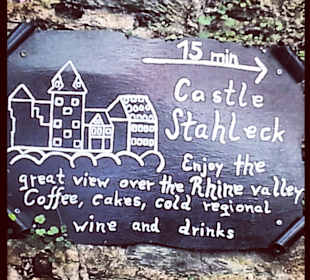 15 min
Castle
Stahleck
Enjoy the
great view over the Rhine valley
Coffee, cakes, cold regional
wine and drinks